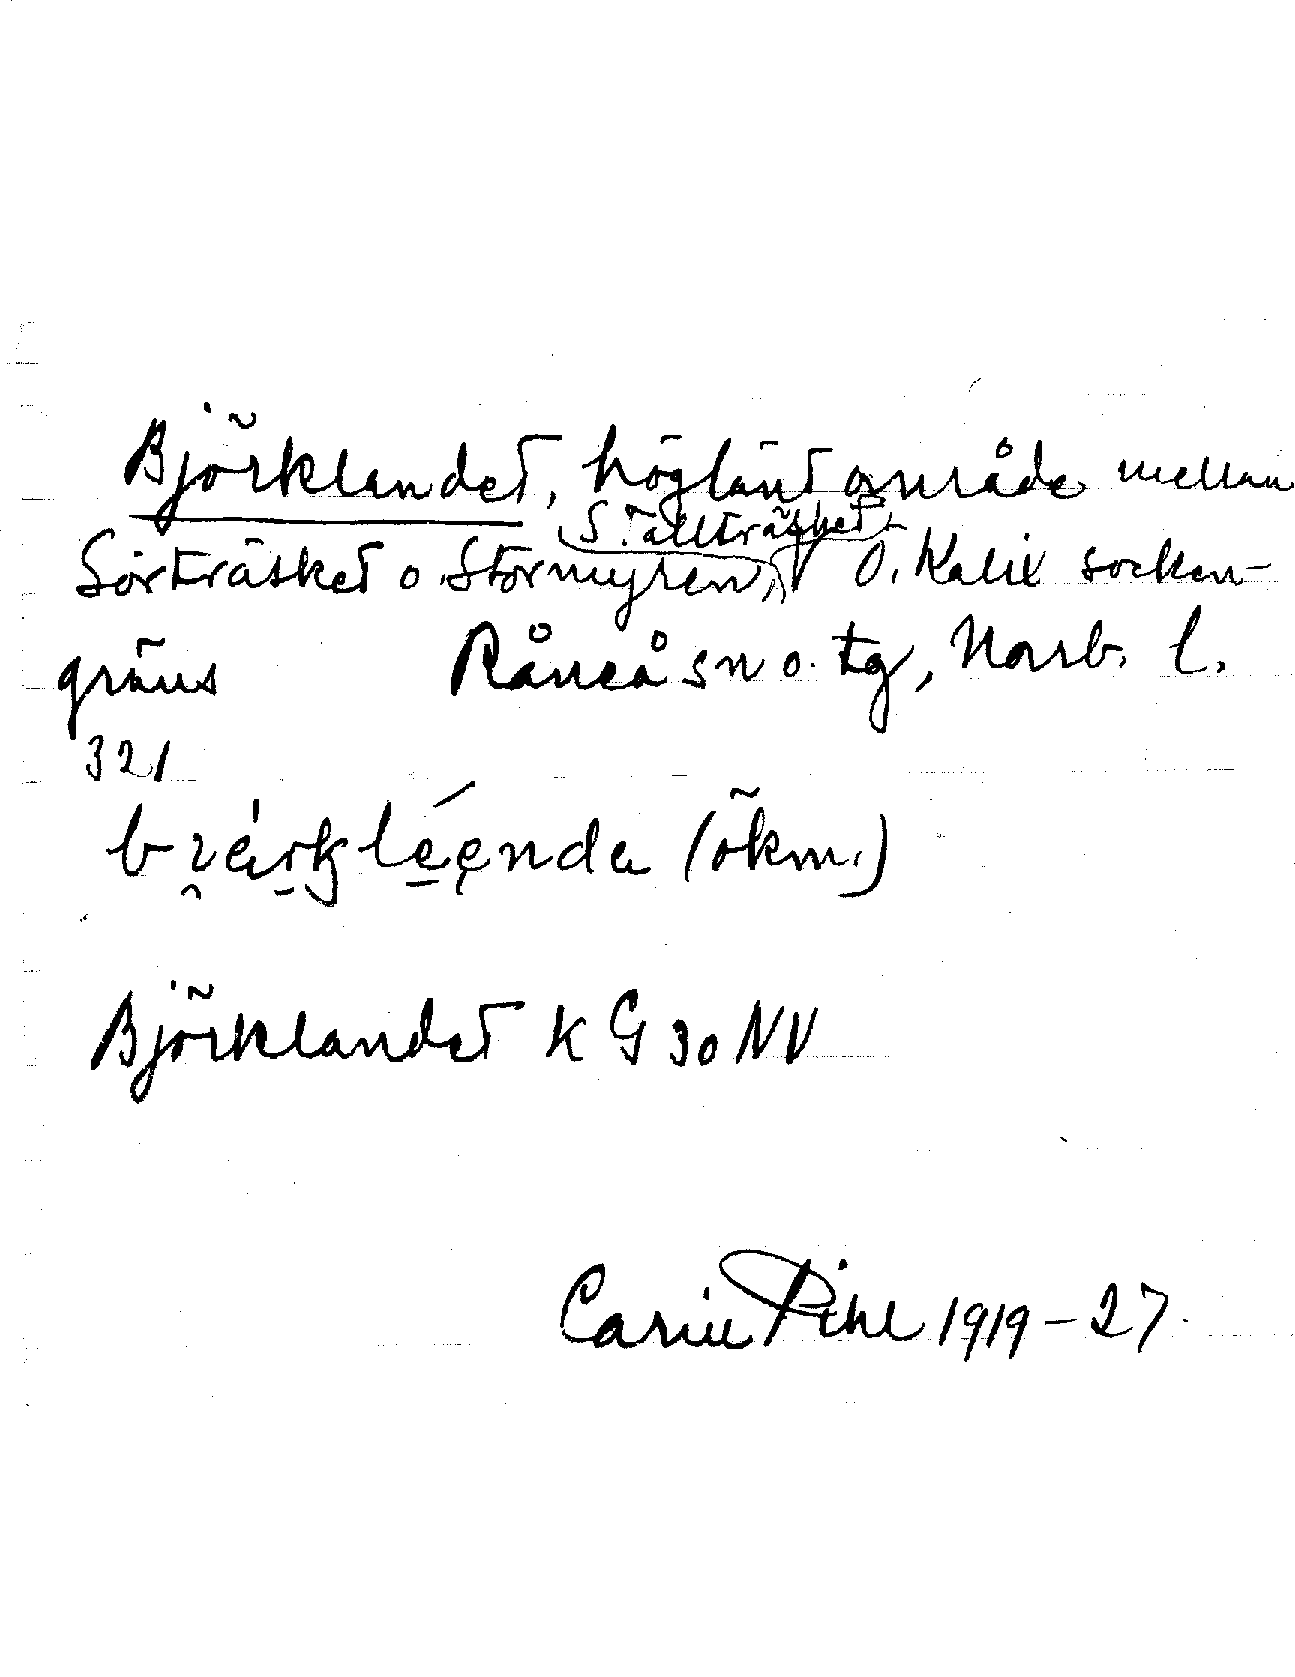 Björklandet, högländt område mellan
S. Tallträsket
Sörträsket o. Stormyren, V Ö. Kalix socken-
gräns Råneå sn o. tg, Norrb. l.
321
(ökn.)
Björklandet K G 30 NV
Carin Pihl 1919-27.